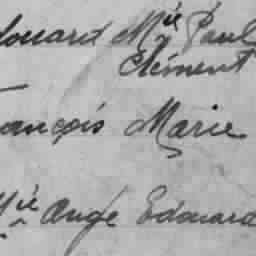 douard Mie Paul
Clément
ançois Marie
Mie Ange Edouard